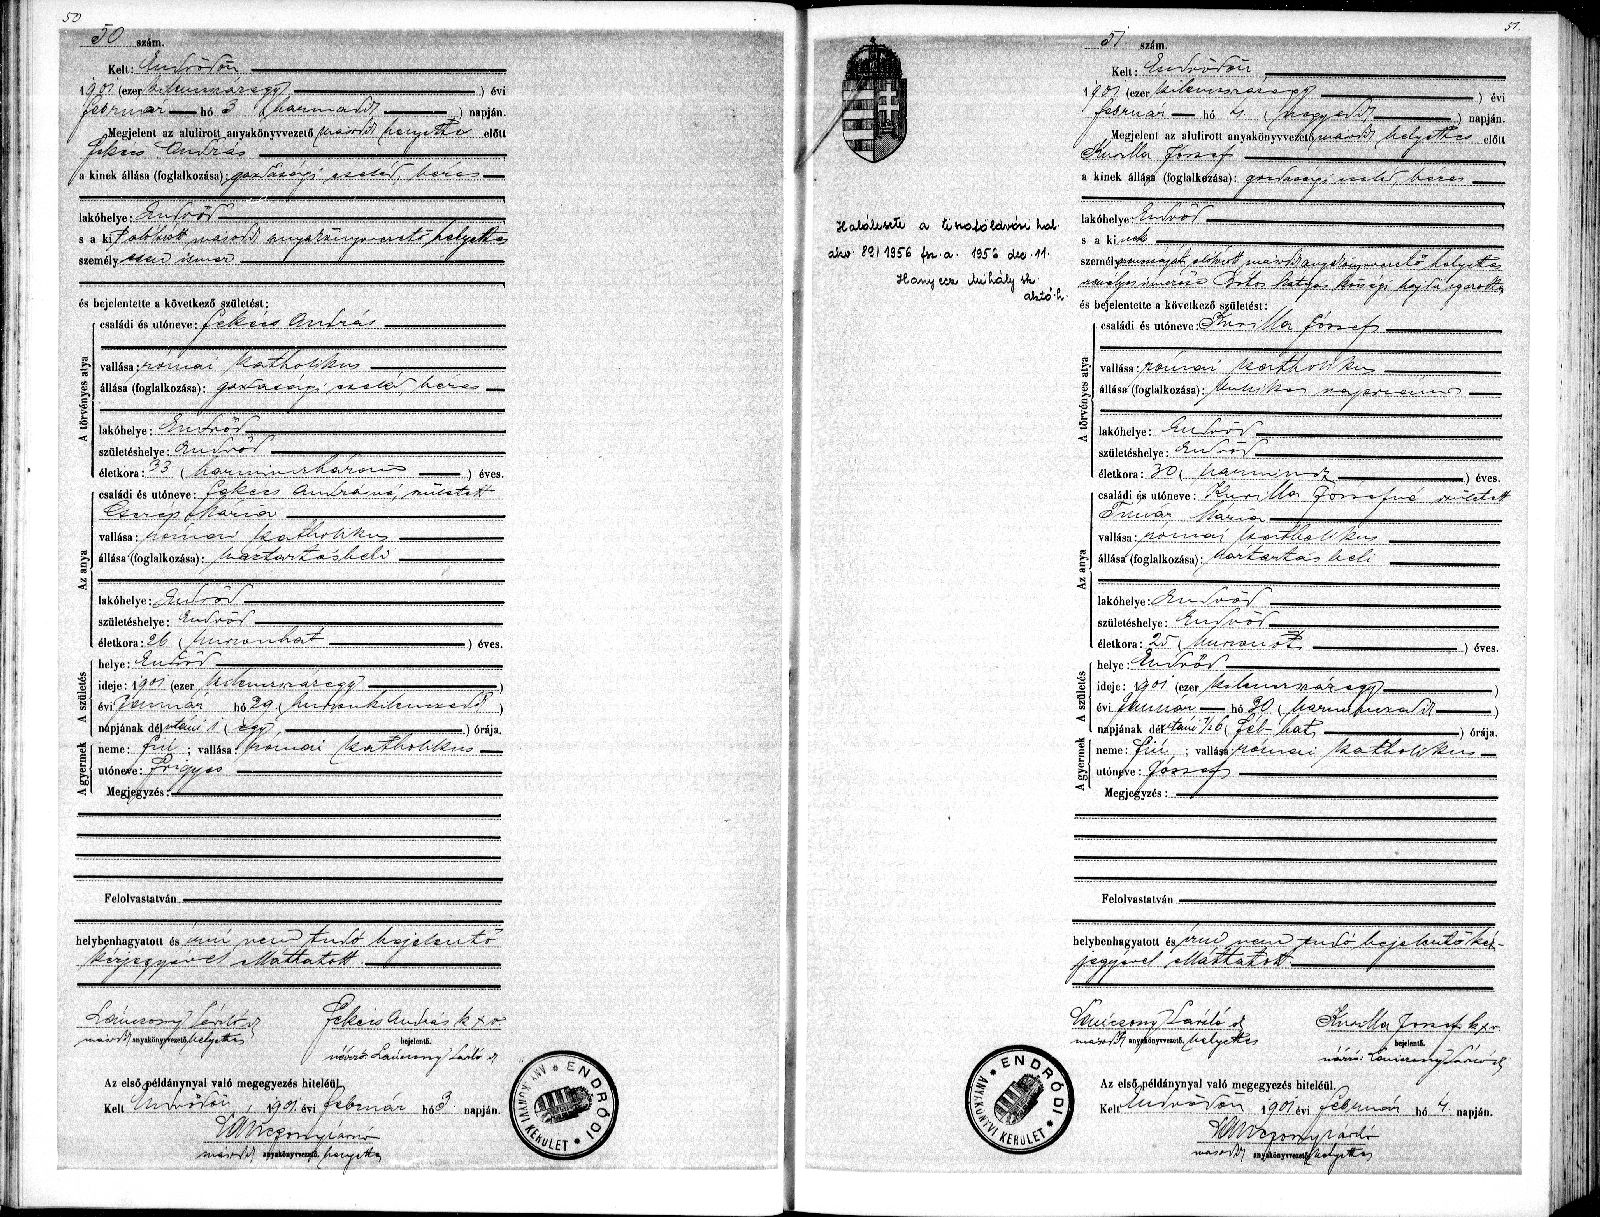 50
50 szám.
Kelt: Endrődön
1901 (ezer kilenczszázegy) évi
február hó 3 (harmadik) napján.
Megjelent az alulirott anyakönyvvezető második helyettes előtt
Fekecs András
a kinek állása (foglalkozása): gazdasági cseléd, béres
lakóhelye: Endrőd
s a kit alulirott második anyakönyvvezető helyettes
személyesen ismer
és bejelentette a következő születést:
A törvényes atya
családi és utóneve: Fekecs András
vallása: római katholikus
állása (foglalkozása): gazdasági cseléd, béres
lakóhelye: Endrőd
születéshelye: Endrőd
életkora: 33 (harminczhárom) éves.
Az anya
családi és utóneve: Fekecs Andrásné, született
Cserep Mária
vallása: római katholikus
állása (foglalkozása): háztartásbeli
lakóhelye: Endrőd
születéshelye: Endrőd
életkora: 26 (huszonhat) éves.
A születés
helye: Endrőd
ideje: 1901 (ezer kilenczszázegy)
évi január hó 29 (huszonkilenczedik)
napjának délutáni 1 (egy) órája.
A gyermek
neme: fiú; vallása: római katholikus
utóneve: Frigyes
Megjegyzés:
Felolvastatván,
helybenhagyatott és írni nem tudó bejelentő
kézjegyével elláttatott.
második anyakönyvvezető, helyettes
Fekecs András k x v
bejelentő.
Az első példánynyal való megegyezés hiteléül.
Kelt Endrődön, 1901 évi február hó 3 napján.
második anyakönyvvezető, helyettes
ENDRŐDI ANYAKÖNYVI KERÜLET
51.
51 szám.
Halálesete a tiszaföldvári hal.
akv. 89/1956 fsz. a. 1956 dec. 11.
Hanyecz Mihály sk
Kelt: Endrődön
1901 (ezer kilenczszázegy) évi
február hó 4 (negyedik) napján.
Megjelent az alulirott anyakönyvvezető, második helyettes előtt
Kurilla József
a kinek állása (foglalkozása): gazdasági cseléd, béres
lakóhelye: Endrőd
s a kinek
személyazonosságát alulirott második anyakönyvvezető helyettes
és bejelentette a következő születést:
A törvényes atya
családi és utóneve: Kurilla József
vallása: római katholikus
állása (foglalkozása):
lakóhelye: Endrőd
születéshelye: Endrőd
életkora: 30 (harmincz) éves.
Az anya
családi és utóneve: Kurilla Józsefné született
Mária
vallása: római katholikus
állása (foglalkozása): háztartásbeli
lakóhelye: Endrőd
születéshelye: Endrőd
életkora: 25 (huszonöt) éves.
A születés
helye: Endrőd
ideje: 1901 (ezer kilenczszázegy)
évi január hó 30 (harminczadik)
napjának délutáni ½6 (fél hat) órája.
A gyermek
neme: fiú; vallása: római katholikus
utóneve: József
Megjegyzés:
Felolvastatván
helybenhagyatott és írni nem tudó bejelentő kéz-
jegyével elláttatott.
második anyakönyvvezető, helyettes
Kurilla József k x v
bejelentő.
Az első példánynyal való megegyezés hiteléül.
Kelt Endrődön 1901 évi február hó 4. napján.
második anyakönyvvezető, helyettes
ENDRŐDI ANYAKÖNYVI KERÜLET